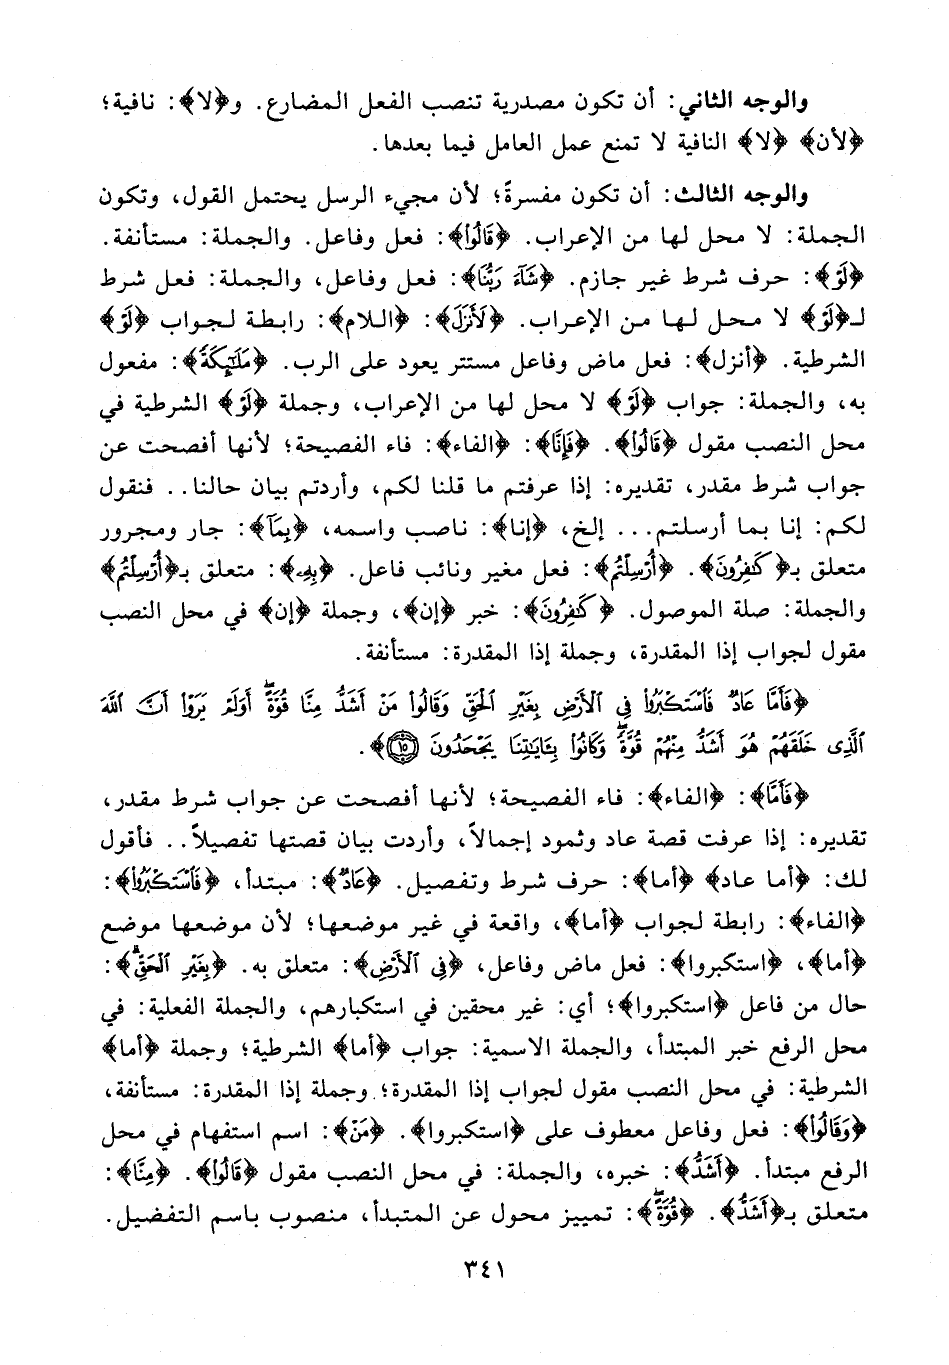 والوجه الثاني: أن تكون مصدرية تنصب الفعل المضارع. و﴿لا﴾: نافية؛
﴿لأن﴾ ﴿لا﴾ النافية لا تمنع عمل العامل فيما بعدها.
والوجه الثالث: أن تكون مفسرةً؛ لأن مجيء الرسل يحتمل القول، وتكون
الجملة: لا محل لها من الإعراب. ﴿قَالُوا﴾: فعل وفاعل. والجملة: مستأنفة.
﴿لَوْ﴾: حرف شرط غير جازم. ﴿شَآءَ رَبُّنَا﴾: فعل وفاعل، والجملة: فعل شرط
لـ﴿لَوْ﴾ لا محل لها من الإعراب. ﴿لَأَنزَلَ﴾: ﴿اللام﴾: رابطة لجواب ﴿لَوْ﴾
الشرطية. ﴿أنزل﴾: فعل ماض وفاعل مستتر يعود على الرب. ﴿مَلَٰٓئِكَةً﴾: مفعول
به، والجملة: جواب ﴿لَوْ﴾ لا محل لها من الإعراب، وجملة ﴿لَوْ﴾ الشرطية في
محل النصب مقول ﴿قَالُوا﴾. ﴿فَإِنَّا﴾: ﴿الفاء﴾: فاء الفصيحة؛ لأنها أفصحت عن
جواب شرط مقدر، تقديره: إذا عرفتم ما قلنا لكم، وأردتم بيان حالنا.. فنقول
لكم: إنا بما أرسلتم... إلخ، ﴿إنا﴾: ناصب واسمه، ﴿بِمَآ﴾: جار ومجرور
متعلق بـ﴿كَٰفِرُونَ﴾. ﴿أُرْسِلْتُم﴾: فعل مغير ونائب فاعل. ﴿بِهِۦ﴾: متعلق بـ﴿أُرْسِلْتُم﴾
والجملة: صلة الموصول. ﴿كَٰفِرُونَ﴾: خبر ﴿إن﴾، وجملة ﴿إن﴾ في محل النصب
مقول لجواب إذا المقدرة، وجملة إذا المقدرة: مستأنفة.
﴿فَأَمَّا عَادٌ فَٱسْتَكْبَرُوا۟ فِى ٱلْأَرْضِ بِغَيْرِ ٱلْحَقِّ وَقَالُوا۟ مَنْ أَشَدُّ مِنَّا قُوَّةً ۖ أَوَلَمْ يَرَوْا۟ أَنَّ ٱللَّهَ
ٱلَّذِى خَلَقَهُمْ هُوَ أَشَدُّ مِنْهُمْ قُوَّةً ۖ وَكَانُوا۟ بِـَٔايَٰتِنَا يَجْحَدُونَ ١٥﴾.
﴿فَأَمَّا﴾: ﴿الفاء﴾: فاء الفصيحة؛ لأنها أفصحت عن جواب شرط مقدر،
تقديره: إذا عرفت قصة عاد وثمود إجمالاً، وأردت بيان قصتها تفصيلاً.. فأقول
لك: ﴿أما عاد﴾ ﴿أما﴾: حرف شرط وتفصيل. ﴿عَادٌ﴾: مبتدأ، ﴿فَٱسْتَكْبَرُوا۟﴾:
﴿الفاء﴾: رابطة لجواب ﴿أما﴾، واقعة في غير موضعها؛ لأن موضعها موضع
﴿أما﴾، ﴿استكبروا﴾: فعل ماض وفاعل، ﴿فِى ٱلْأَرْضِ﴾: متعلق به. ﴿بِغَيْرِ ٱلْحَقِّ﴾:
حال من فاعل ﴿استكبروا﴾؛ أي: غير محقين في استكبارهم، والجملة الفعلية: في
محل الرفع خبر المبتدأ، والجملة الاسمية: جواب ﴿أما﴾ الشرطية؛ وجملة ﴿أما﴾
الشرطية: في محل النصب مقول لجواب إذا المقدرة؛ وجملة إذا المقدرة: مستأنفة،
﴿وَقَالُوا۟﴾: فعل وفاعل معطوف على ﴿استكبروا﴾. ﴿مَنْ﴾: اسم استفهام في محل
الرفع مبتدأ. ﴿أَشَدُّ﴾: خبره، والجملة: في محل النصب مقول ﴿قَالُوا۟﴾. ﴿مِنَّا﴾:
متعلق بـ﴿أَشَدُّ﴾. ﴿قُوَّةً ۖ﴾: تمييز محول عن المتبدأ، منصوب باسم التفضيل.
٣٤١